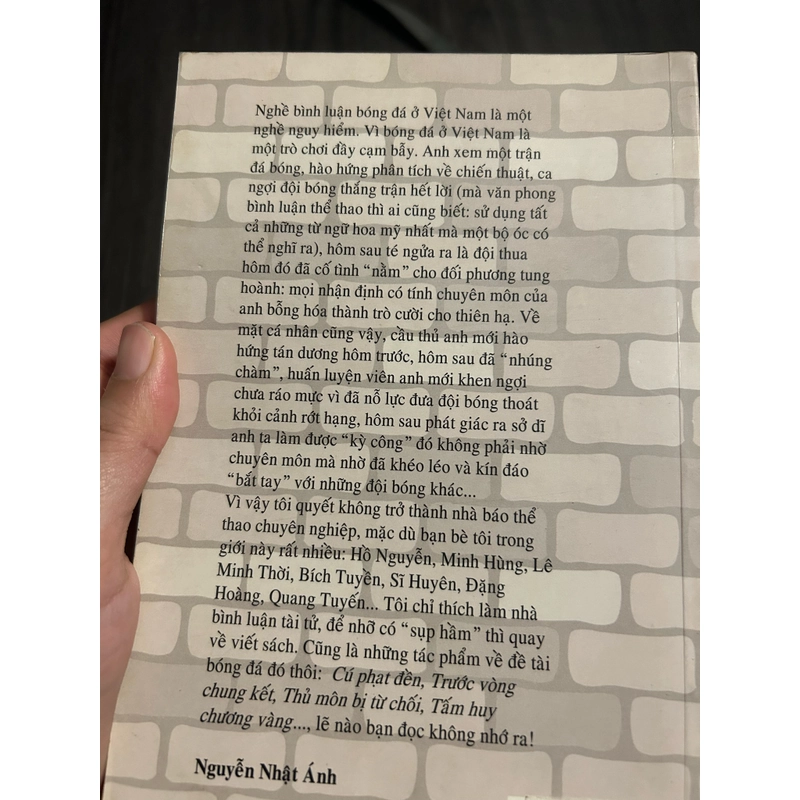 Nghề bình luận bóng đá ở Việt Nam là một
nghề nguy hiểm. Vì bóng đá ở Việt Nam là
một trò chơi đầy cạm bẫy. Anh xem một trận
đá bóng, hào hứng phân tích về chiến thuật, ca
ngợi đội bóng thắng trận hết lời (mà văn phong
bình luận thể thao thì ai cũng biết: sử dụng tất
cả những từ ngữ hoa mỹ nhất mà một bộ óc có
thể nghĩ ra), hôm sau té ngửa ra là đội thua
hôm đó đã cố tình “nằm” cho đối phương tung
hoành: mọi nhận định có tính chuyên môn của
anh bỗng hóa thành trò cười cho thiên hạ. Về
mặt cá nhân cũng vậy, cầu thủ anh mới hào
hứng tán dương hôm trước, hôm sau đã “nhúng
chàm”, huấn luyện viên anh mới khen ngợi
chưa ráo mực vì đã nỗ lực đưa đội bóng thoát
khỏi cảnh rớt hạng, hôm sau phát giác ra sở dĩ
anh ta làm được “kỳ công” đó không phải nhờ
chuyên môn mà nhờ đã khéo léo và kín đáo
“bắt tay” với những đội bóng khác...
Vì vậy tôi quyết không trở thành nhà báo thể
thao chuyên nghiệp, mặc dù bạn bè tôi trong
giới này rất nhiều: Hồ Nguyễn, Minh Hùng, Lê
Minh Thời, Bích Tuyền, Sĩ Huyên, Đặng
Hoàng, Quang Tuyến... Tôi chỉ thích làm nhà
bình luận tài tử, để nhỡ có “sụp hầm” thì quay
về viết sách. Cũng là những tác phẩm về đề tài
bóng đá đó thôi: Cú phạt đền, Trước vòng
chung kết, Thủ môn bị từ chối, Tấm huy
chương vàng..., lẽ nào bạn đọc không nhớ ra!
Nguyễn Nhật Ánh